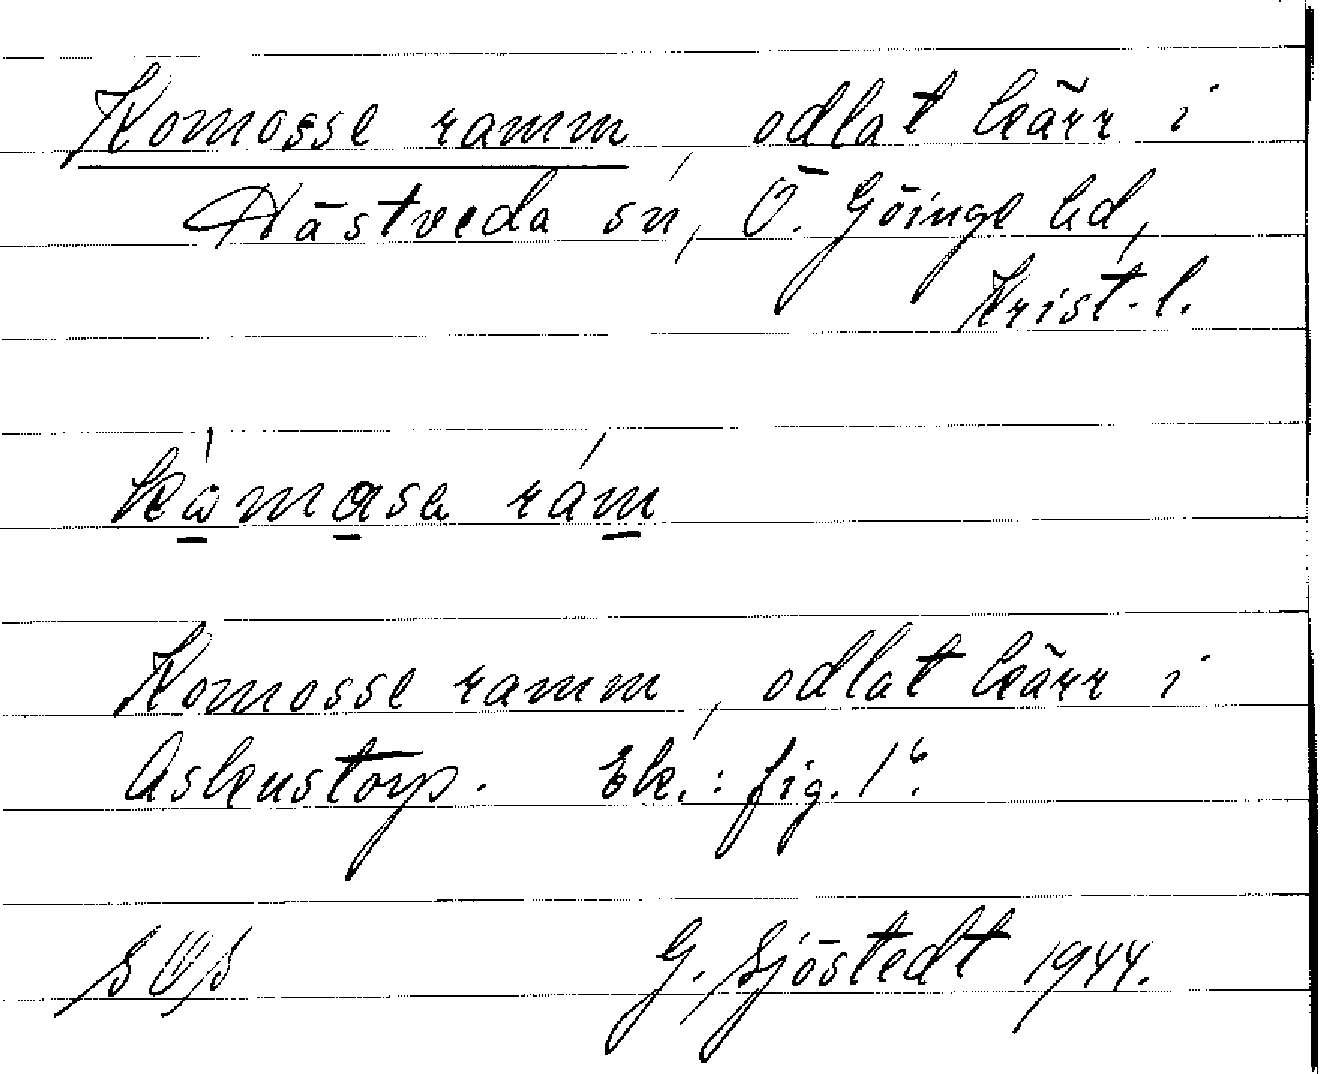 Komosse ramm, odlat kärr i
Hästveda sn, Ö. Göinge hd,
Krist. l.
Komosse ramm, odlat kärr i
Askenstorp. Ek.: fig. 1⁶.
SOS G. Sjöstedt 1944.